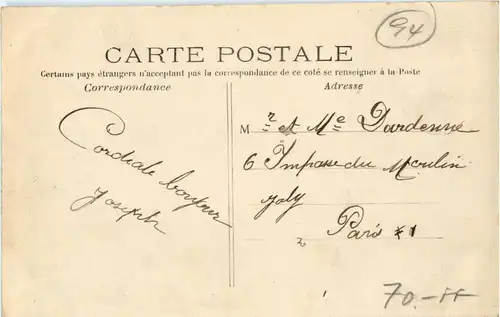 94
CARTE POSTALE
Certains pays étrangers n'acceptant pas la correspondance de ce coté se renseigner à la Poste
Correspondance
Adresse
Cordiale bonjour
Joseph
Mr et Me Dardenne
6 Impasse du Moulin
Joly
Paris
70.-